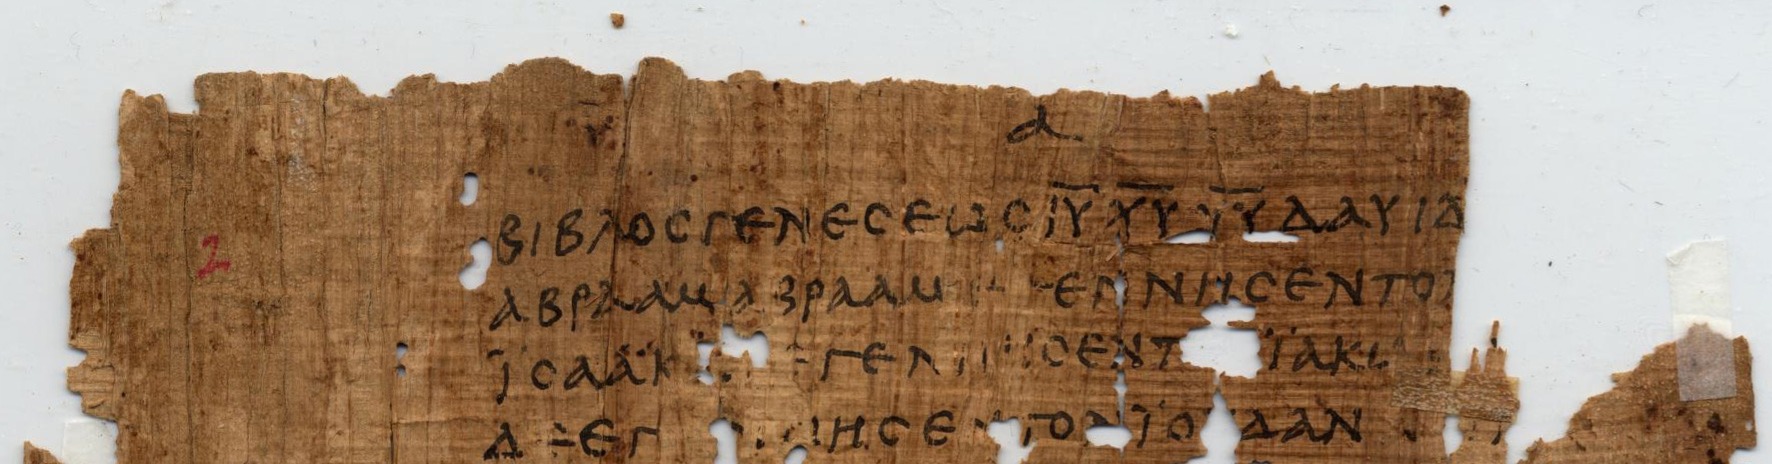 α
ΒΙΒΛΟϹ ΓΕΝΕϹΕΩϹ Ι̅Υ̅ Χ̅Υ̅ Υ̅Υ̅ ΔΑΥΙΔ
ΑΒΡΑΑΜ ΑΒΡΑΑΜ ΕΓΕΝΝΗϹΕΝ ΤΟΝ
ΪϹΑΑΚ ΕΓΕΝΝΗϹΕΝ Τ ΪΑΚΩ
Δ Ε ΕΓΕΝΝΗϹΕΝ ΤΟΝ ΪΟΥΔΑΝ
2